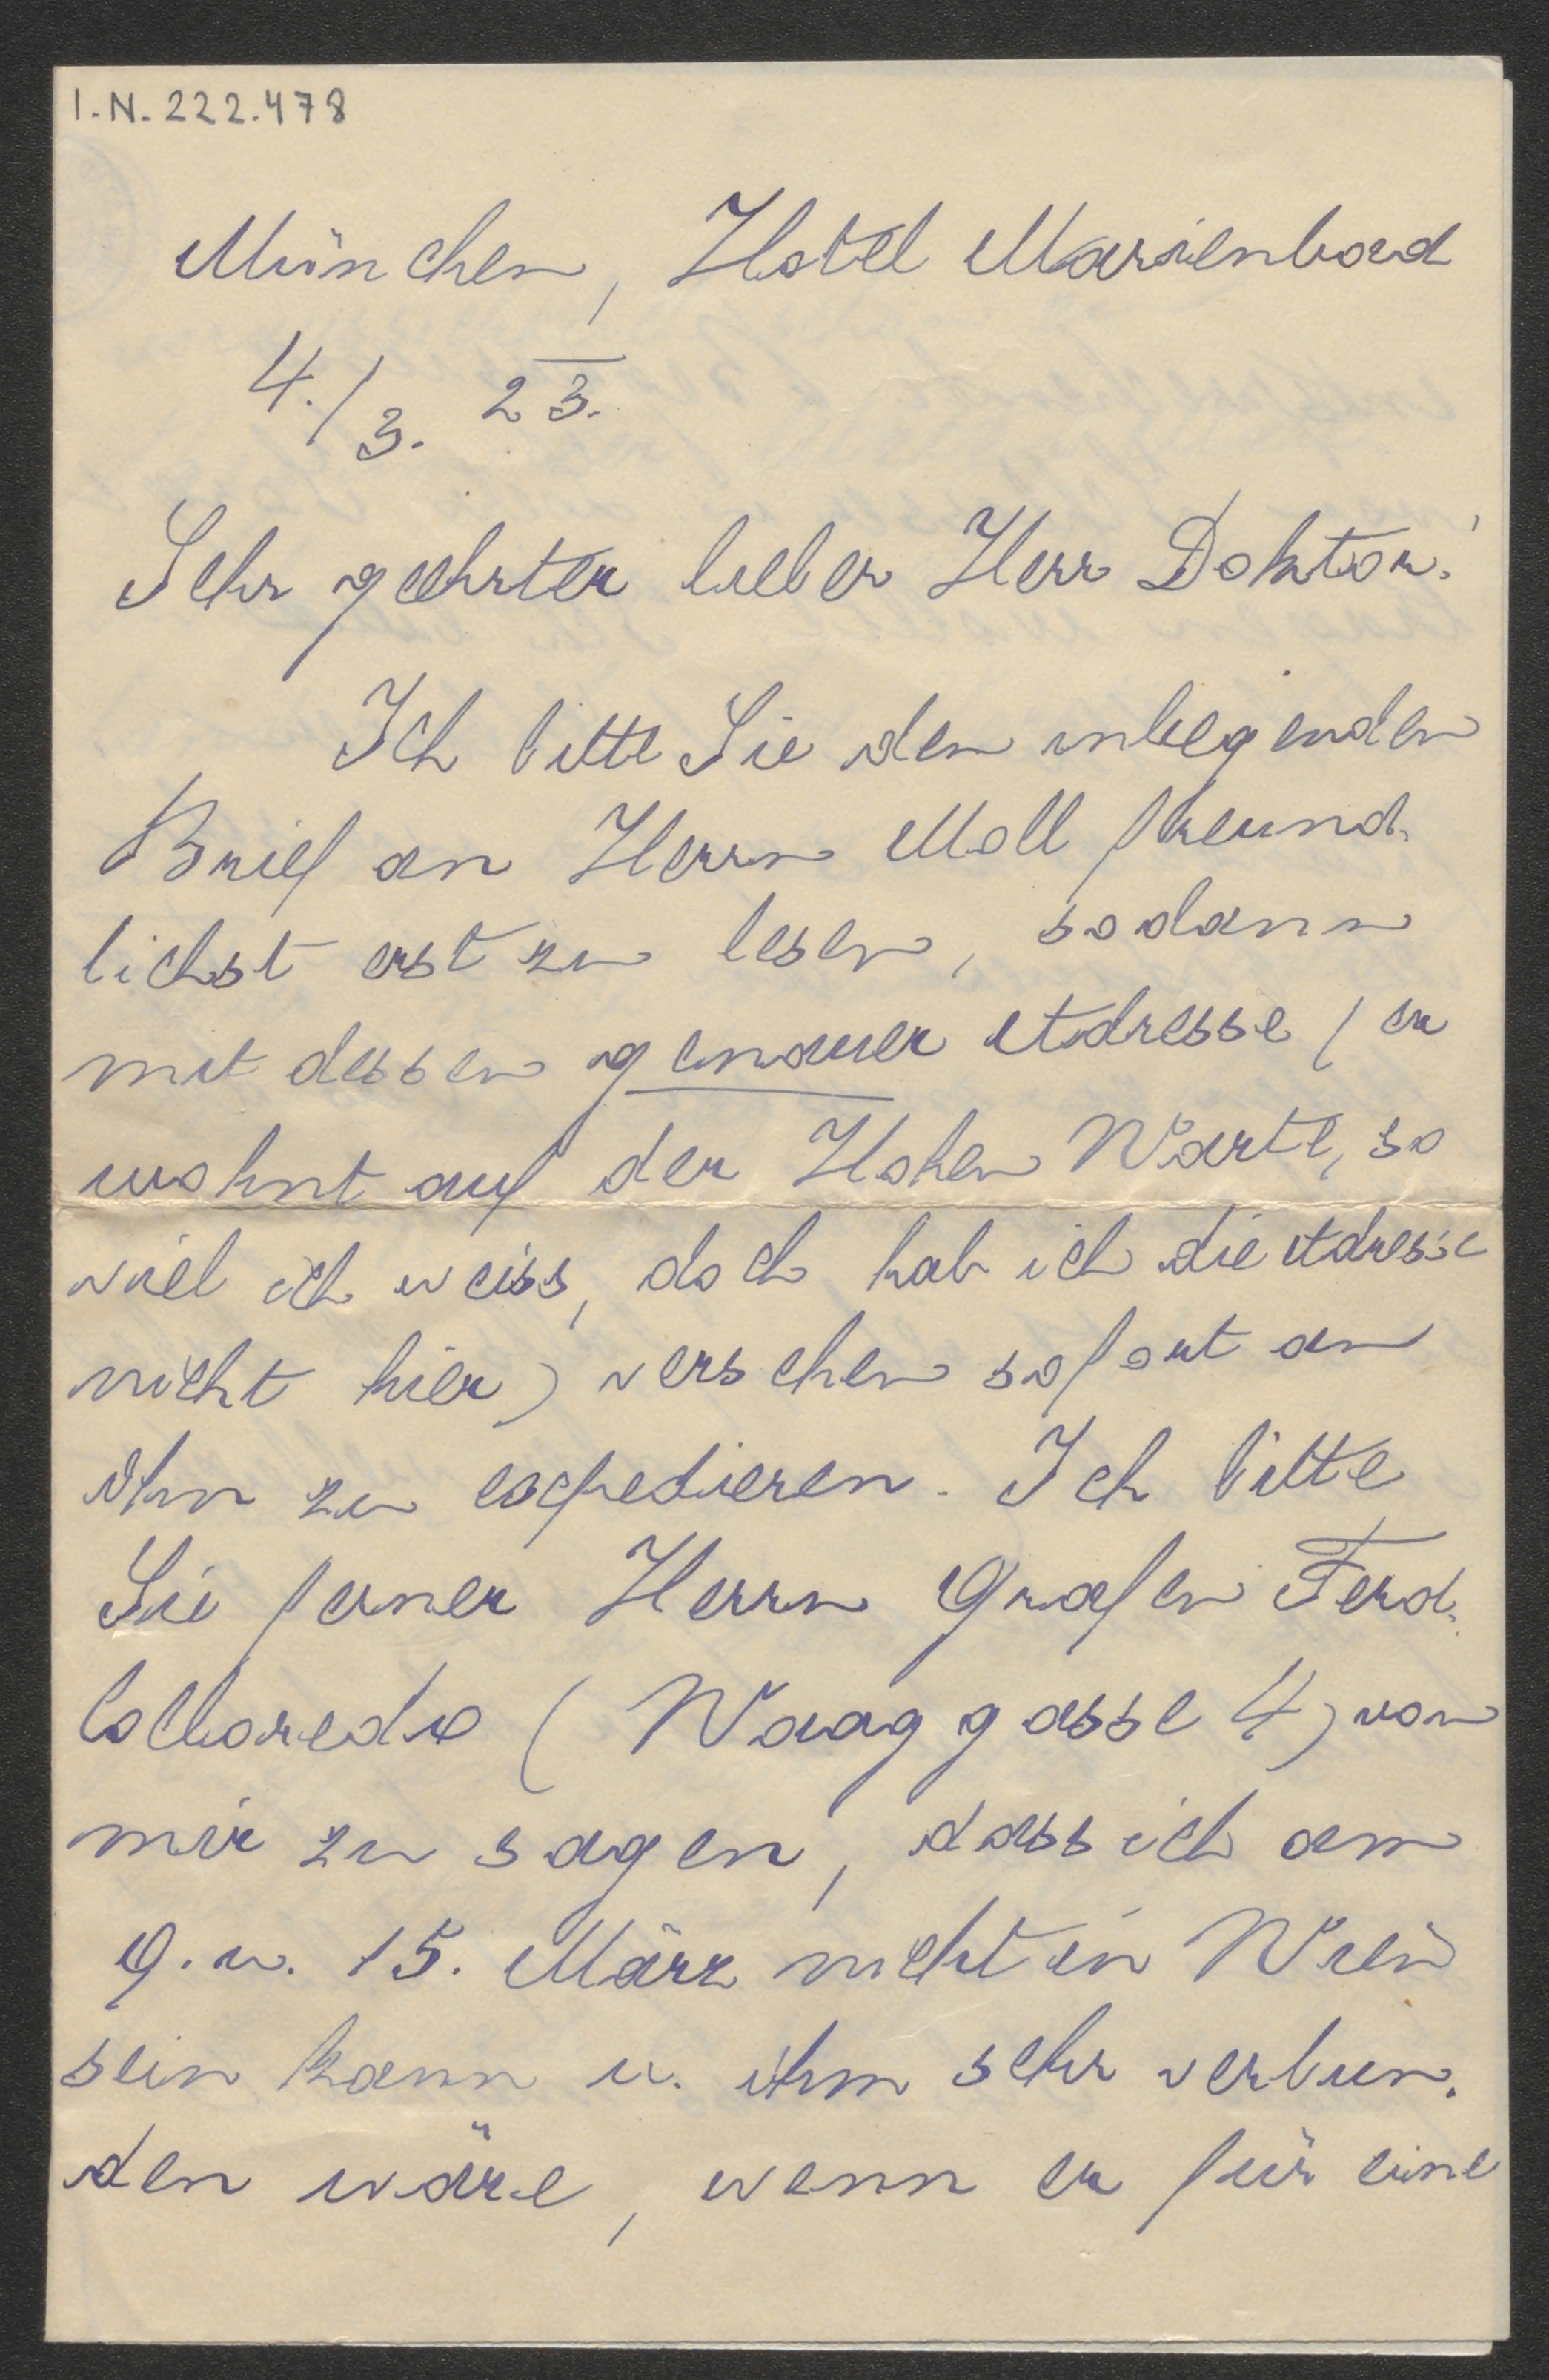 I.N. 222.478
München, Hotel Marienbad
4./3. 23.
Sehr geehrter lieber Herr Doktor!
Ich bitte Sie den inliegenden
Brief an Herrn Moll freund-
lichst erst zu lesen, sodann
mit dessen genauer Adresse (er
wohnt auf der Hohen Warte, so
viel ich weiss, doch hab ich die Adresse
nicht hier) versehen sofort an
ihn zu expedieren. Ich bitte
Sie ferner Herrn Grafen Ferd.
Colloredo (Waaggasse 4) von
mir zu sagen, dass ich am
9. u. 15. März nicht in Wien
sein kann u. ihm sehr verbun-
den wäre, wenn er für eine